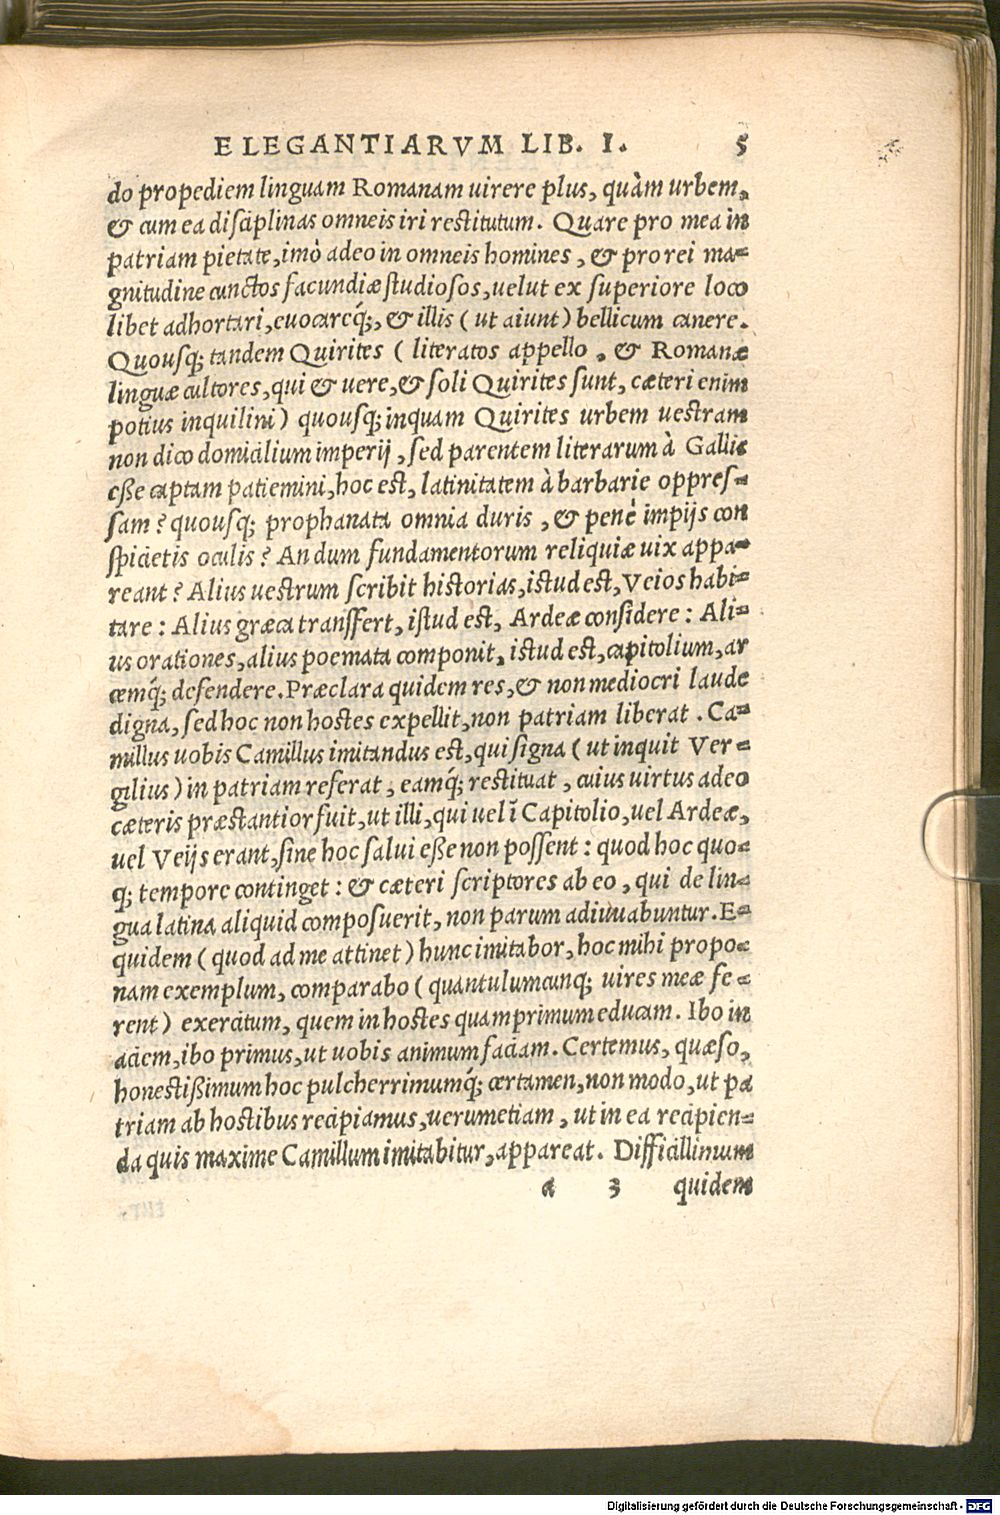 ELEGANTIARVM LIB. I. 5
do propediem linguam Romanam uirere plus, quàm urbem,
& cum ea disciplinas omneis iri restitutum. Quare pro mea in
patriam pietate, imò adeo in omneis homines, & pro rei ma-
gnitudine cunctos facundiæ studiosos, uelut ex superiore loco
libet adhortari, euocareq́;, & illis ( ut aiunt ) bellicum canere.
Quousq; tandem Quirites ( literatos appello, & Romanæ
linguæ cultores, qui & uere, & soli Quirites sunt, cæteri enim
potius inquilini ) quousq; inquam Quirites urbem uestram
non dico domicilium imperij, sed parentem literarum à Gallis
esse captam patiemini, hoc est, latinitatem à barbarie oppres-
sam ? quousq; prophanata omnia duris, & penè impijs con
spicietis oculis ? An dum fundamentorum reliquiæ uix appa-
reant ? Alius uestrum scribit historias, istud est, Veios habi-
tare : Alius græca transffert, istud est, Ardeæ considere : Ali-
us orationes, alius poemata componit, istud est, capitolium, ar
cemq́; defendere. Præclara quidem res, & non mediocri laude
digna, sed hoc non hostes expellit, non patriam liberat. Ca-
millus uobis Camillus imitandus est, qui signa ( ut inquit Ver-
gilius ) in patriam referat, eamq́; restituat, cuius uirtus adeo
cæteris præstantior fuit, ut illi, qui uel ī Capitolio, uel Ardeæ,
uel Veijs erant, sine hoc salui esse non possent : quod hoc quo-
q; tempore continget : & cæteri scriptores ab eo, qui de lin-
gua latina aliquid composuerit, non parum adiuuabuntur. E-
quidem ( quod ad me attinet ) hunc imitabor, hoc mihi propo-
nam exemplum, comparabo ( quantulumcunq; uires meæ fe-
rent ) exercitum, quem in hostes quamprimum educam. Ibo in
aciem, ibo primus, ut uobis animum faciam. Certemus, quæso,
honestissimum hoc pulcherrimumq́; certamen, non modo, ut pa
triam ab hostibus recipiamus, uerumetiam, ut in ea recipien-
da quis maxime Camillum imitabitur, appareat. Difficillimum
a 3 quidem
Digitalisierung gefördert durch die Deutsche Forschungsgemeinschaft - DFG